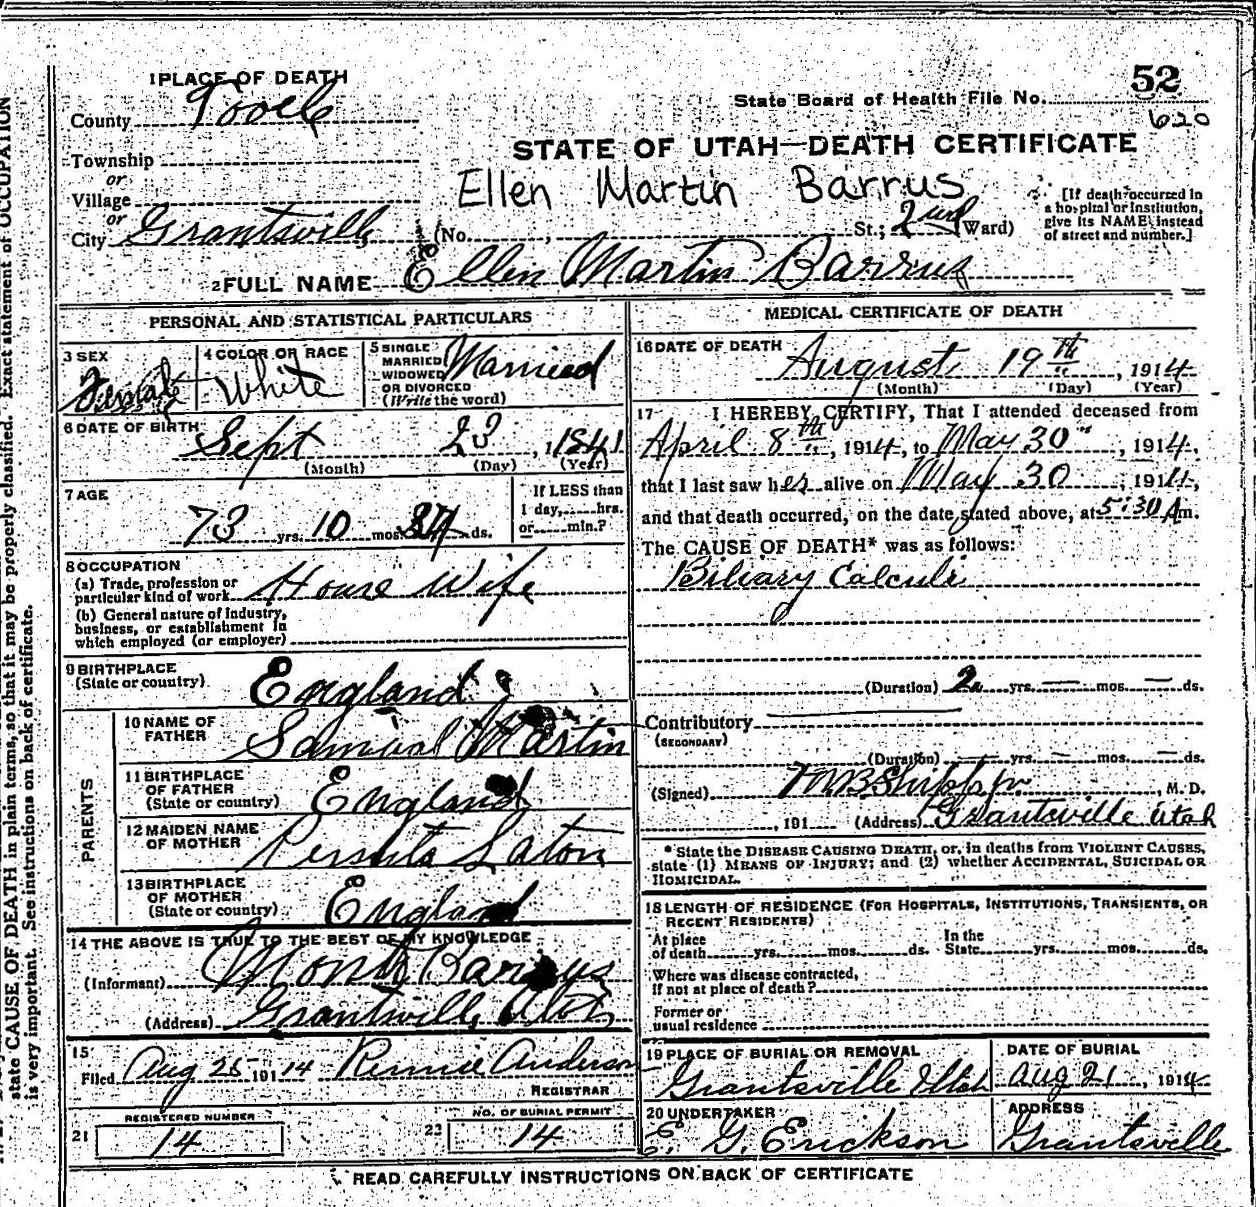 1 PLACE OF DEATH
County Tooele
Township
or
Village
or
City Grantsville (No. , St.; 2nd Ward)
52
State Board of Health File No.
620
STATE OF UTAH—DEATH CERTIFICATE
Ellen Martin Barrus
[If death occurred in
a hospital or institution,
give its NAME instead
of street and number.]
2 FULL NAME Ellen Martin Barrus
PERSONAL AND STATISTICAL PARTICULARS
3 SEX
Female
4 COLOR OR RACE
White
5 SINGLE
MARRIED
WIDOWED
OR DIVORCED
(Write the word)
Married
6 DATE OF BIRTH
Sept 23, 1841
(Month) (Day) (Year)
7 AGE
73 yrs. 10 mos. ds.
If LESS than
1 day, hrs.
or min.?
8 OCCUPATION
(a) Trade, profession or
particular kind of work House Wife
(b) General nature of industry,
business, or establishment in
which employed (or employer)
9 BIRTHPLACE
(State or country) England
PARENTS
10 NAME OF
FATHER Samual Martin
11 BIRTHPLACE
OF FATHER
(State or country) England
12 MAIDEN NAME
OF MOTHER
13 BIRTHPLACE
OF MOTHER
(State or country) England
14 THE ABOVE IS TRUE TO THE BEST OF MY KNOWLEDGE
(Informant) Barrus
(Address) Grantsville Utah
15
Filed Aug 25 1914 Anderson
REGISTRAR
REGISTERED NUMBER
21 14
NO. OF BURIAL PERMIT
22 14
MEDICAL CERTIFICATE OF DEATH
16 DATE OF DEATH
August 19th, 1914
(Month) (Day) (Year)
17 I HEREBY CERTIFY, That I attended deceased from
April 8th, 1914, to May 30", 1914,
that I last saw her alive on May 30, 1914,
and that death occurred, on the date stated above, at 5:30 Am.
The CAUSE OF DEATH* was as follows:
Biliary Calculi
(Duration) 2 yrs. — mos. — ds.
Contributory
(SECONDARY)
(Duration) — yrs. — mos. — ds.
(Signed) , M. D.
, 191 (Address) Grantsville Utah
* State the DISEASE CAUSING DEATH, or, in deaths from VIOLENT CAUSES,
state (1) MEANS OF INJURY; and (2) whether ACCIDENTAL, SUICIDAL OR
HOMICIDAL.
18 LENGTH OF RESIDENCE (FOR HOSPITALS, INSTITUTIONS, TRANSIENTS, OR
RECENT RESIDENTS)
At place
of death yrs. mos. ds.
In the
State yrs. mos. ds.
Where was disease contracted,
if not at place of death?
Former or
usual residence
19 PLACE OF BURIAL OR REMOVAL
Grantsville Utah
DATE OF BURIAL
Aug 21, 1914
20 UNDERTAKER
E. G. Erickson
ADDRESS
Grantsville
READ CAREFULLY INSTRUCTIONS ON BACK OF CERTIFICATE
state CAUSE OF DEATH in plain terms, so that it may be properly classified. Exact statement of OCCUPATION
is very important. See instructions on back of certificate.